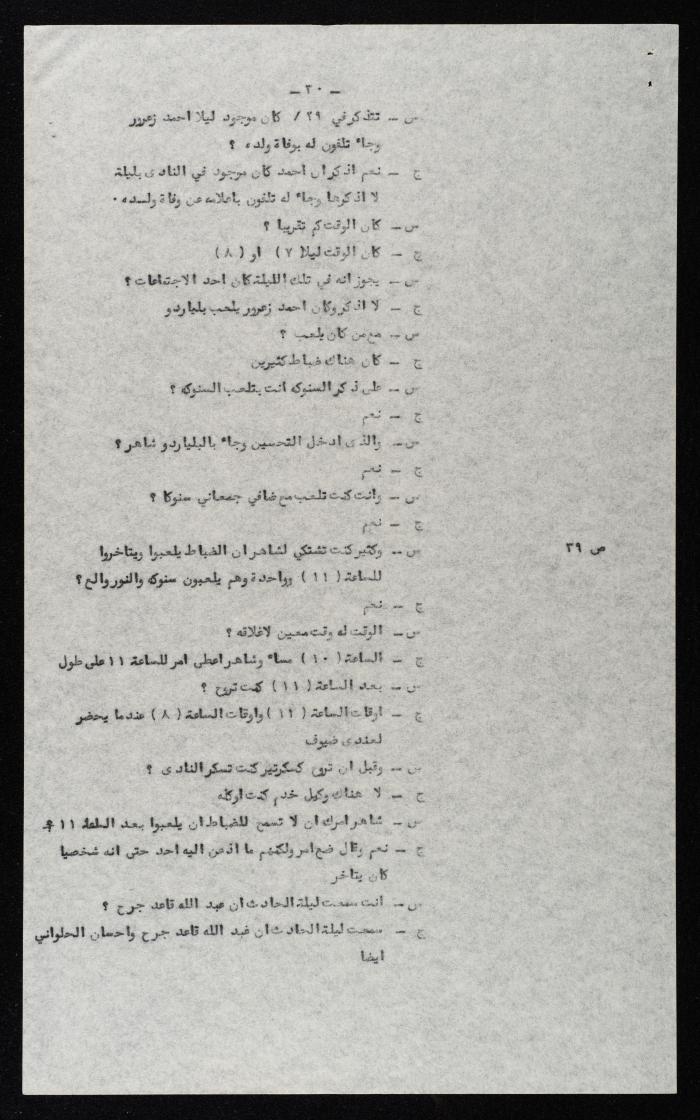 - ٣٠ -
س - تتذكر في ٢٩ / كان موجود ليلا احمد زعرور
وجاء تلفون له بوفاة ولده ؟
ج - نعم اذكر ان احمد كان موجود في النادى بليلة
لا اذكرها وجاء له تلفون باعلامه عن وفاة ولسده .
س - كان الوقت كم تقريبا ؟
ج - كان الوقت ليلا ( ٧ ) او ( ٨ )
س - يجوز انه في تلك الليلة كان احد الاجتماعات ؟
ج - لا اذكر وكان احمد زعرور يلعب بلياردو
س - مع من كان يلعب ؟
ج - كان هناك ضباط كثيرين
س - على ذكر السنوكه انت بتلعب السنوكه ؟
ج - نعم
س - والذى ادخل التحسين وجاء بالبلياردو شاهر ؟
ج - نعم
س - وانت كنت تلعب مع ضافي جمعاني سنوكا ؟
ج - نعم
ص ٣٩
س - وكثير كنت تشتكي لشاهر ان الضباط يلعبوا ويتاخروا
للساعة ( ١١ ) وواحدة وهم يلعبون سنوكه والنور والع ؟
ج - نعم
س - الوقت له وقت معين لاغلاقه ؟
ج - الساعة ( ١٠ ) مساء وشاهر اعطى امر للساعة ١١ على طول
س - بعد الساعة ( ١١ ) كنت تروح ؟
ج - اوقات الساعة ( ١١ ) واوقات الساعة ( ٨ ) عندما يحضر
لعندى ضيوف
س - وقبل ان تروح كسكرتير كنت تسكر النادى ؟
ج - لا هناك وكيل خدم كنت اوكله
س - شاهر امرك ان لا تسمح للضباط ان يلعبوا بعد الساعة ١١
ج - نعم وقال ضع امر ولكنهم ما اذعن اليه احد حتى انه شخصيا
كان يتاخر
س - انت سمعت ليلة الحادث ان عبد الله قاعد جرح ؟
ج - سمعت ليلة الحادث ان عبد الله قاعد جرح واحسان الحلواني
ايضا